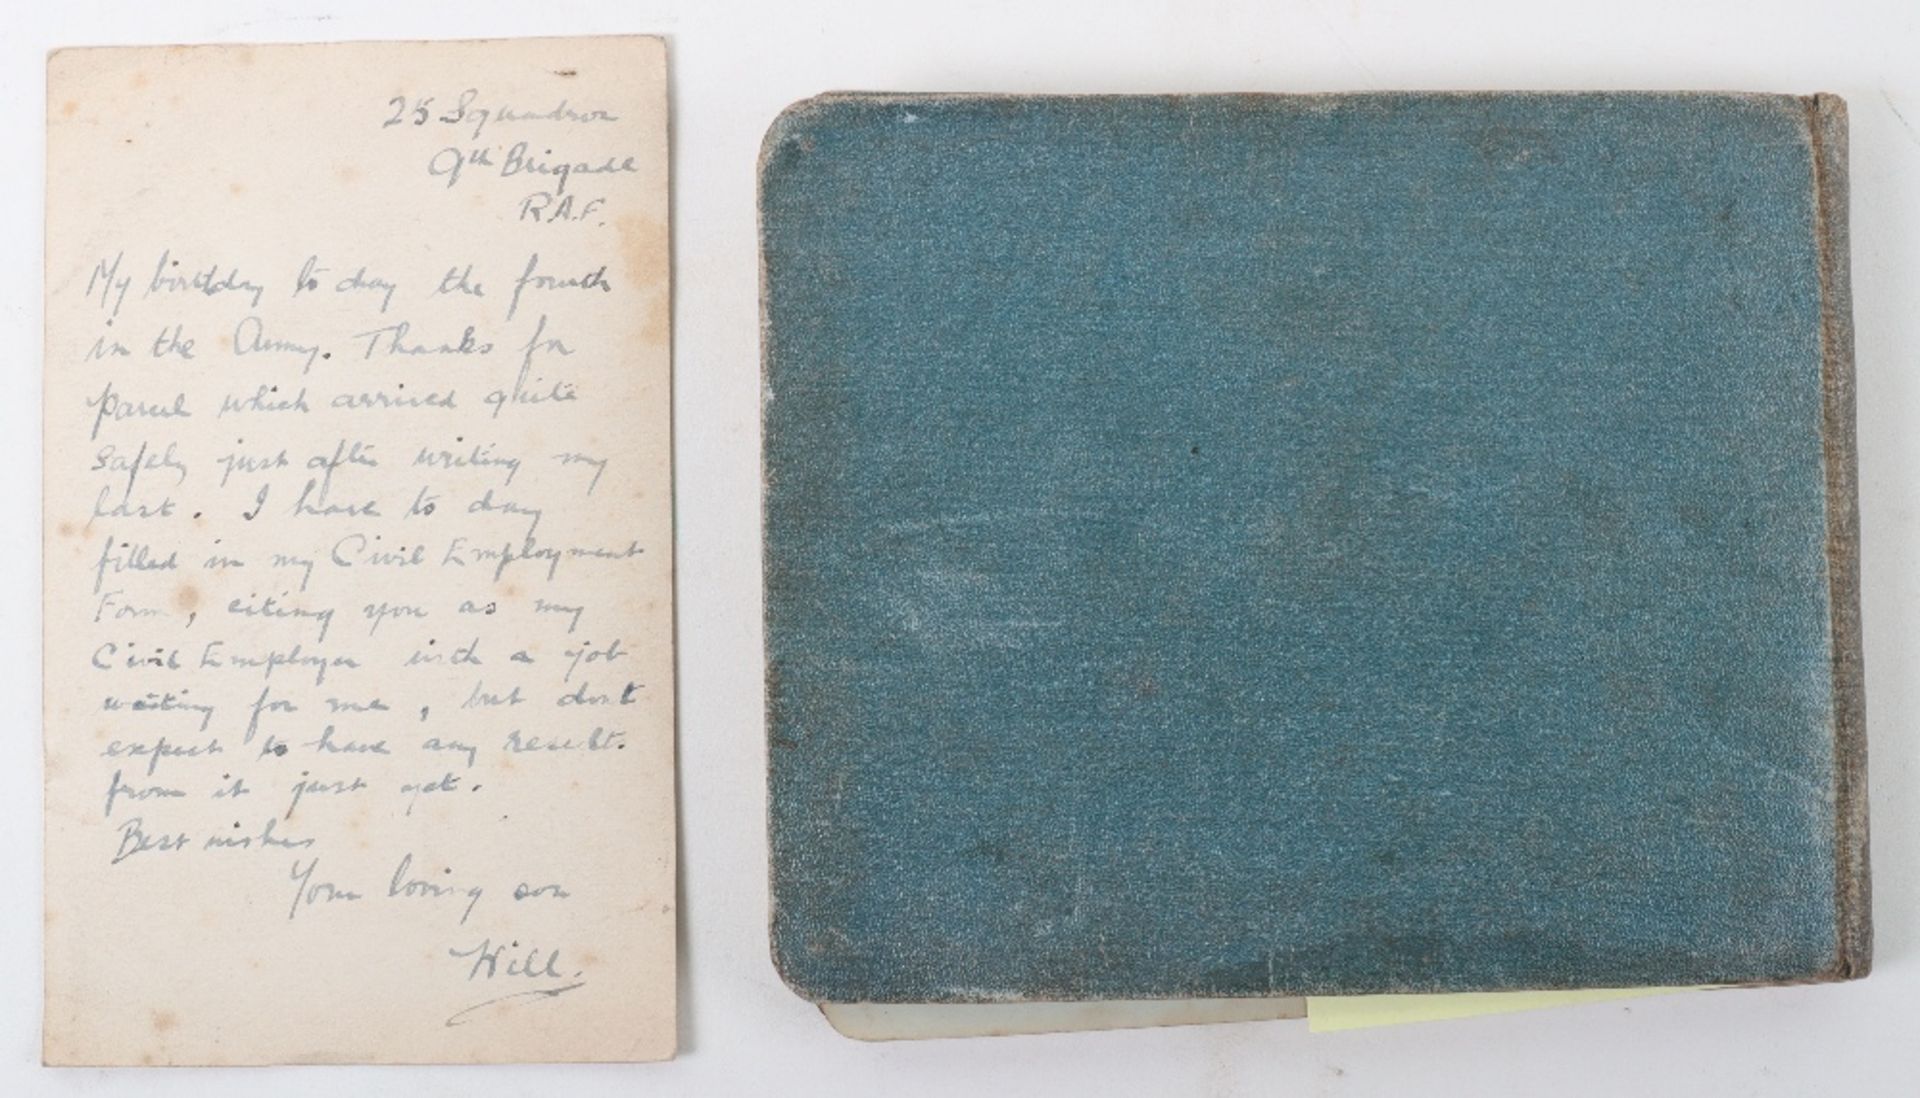 25 Squadron
9th Brigade
R.A.F.
My birthday to day the fourth
in the Army. Thanks for
parcel which arrived quite
safely just after writing my
last. I have to day
filled in my Civil Employment
Form, citing you as my
Civil Employer with a job
waiting for me, but dont
expect to have any result.
from it just yet.
Best wishes
Your loving son
Will.